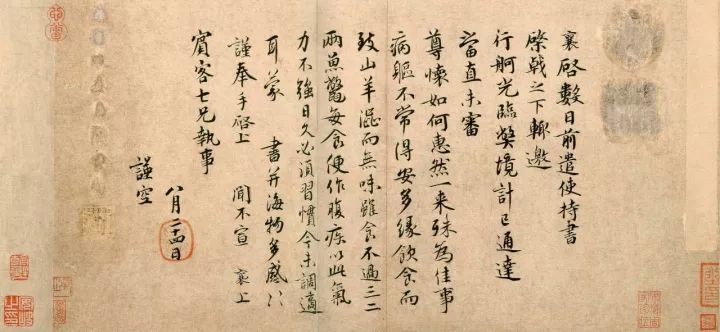 襄啓數日前遣使持書
棨戟之下輒邀
行舸光臨獘境計已通達
當直未審
尊懐如何惠然一來殊為佳事
病軀不常得安多縁飲食而
致山羊澁而無味雖食不過三二
兩魚鱉每食便作腹疾以此氣
力不強日久必須習慣今未調適
耳蒙 書并海物多感〻
謹奉手啓上 聞不宣 襄上
賔客七兄執事
八月二十四日
謹空